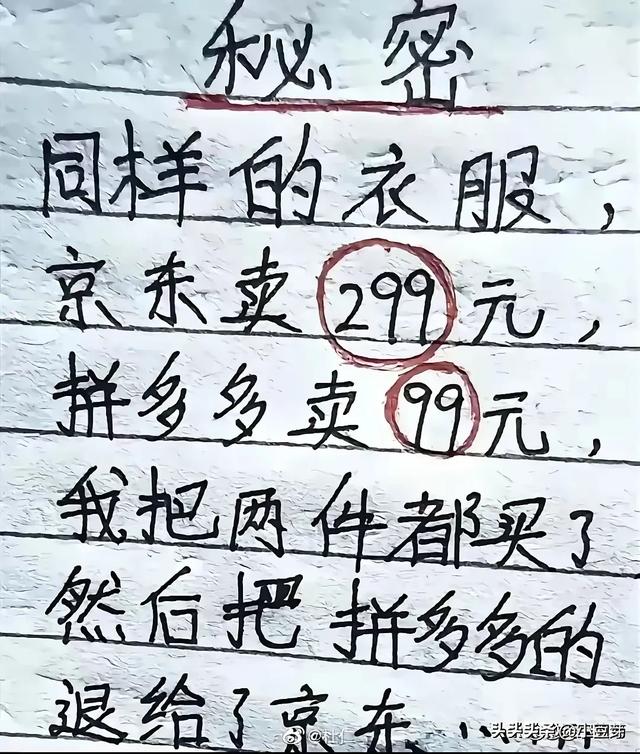 秘密
同样的衣服，
京东卖299元，
拼多多卖99元，
我把两件都买了
然后把拼多多的
退给了京东…
@杜仁
头条@江豆芽